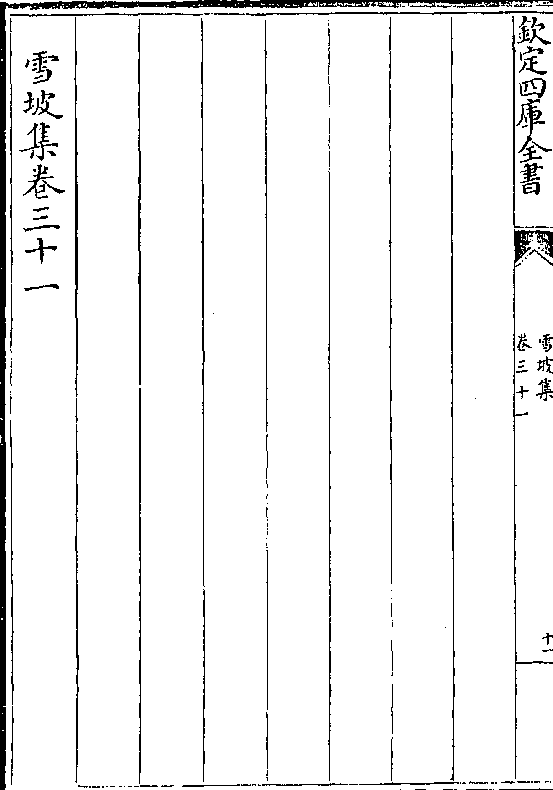 欽定四庫全書
雪坡集
卷三十一
十一
雪坡集卷三十一